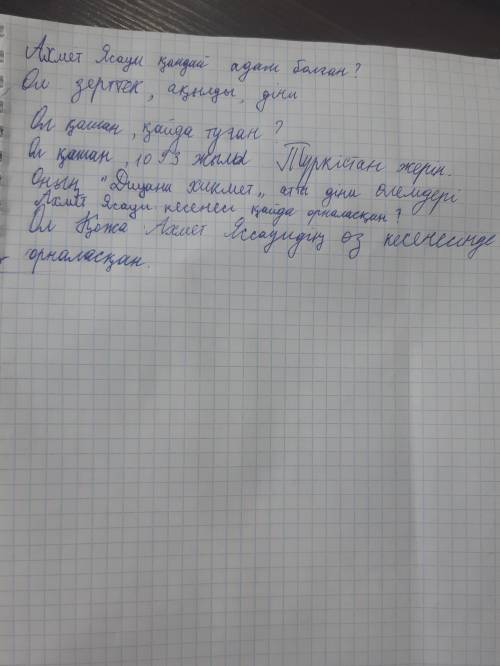 Ахмет Ясауи қандай адам болған?
Ол зерттек, ақылды, діни
Ол қашан, қайда туған?
Ол қашан, 1093 жылы Түркістан жерін.
Оның "Дицани хикмет" атты діни өлеңдері
Ахмет Ясауи кесенесі қайда орналасқан?
Ол Қожа Ахмет Яссауидің өз кесенесінде
орналасқан.